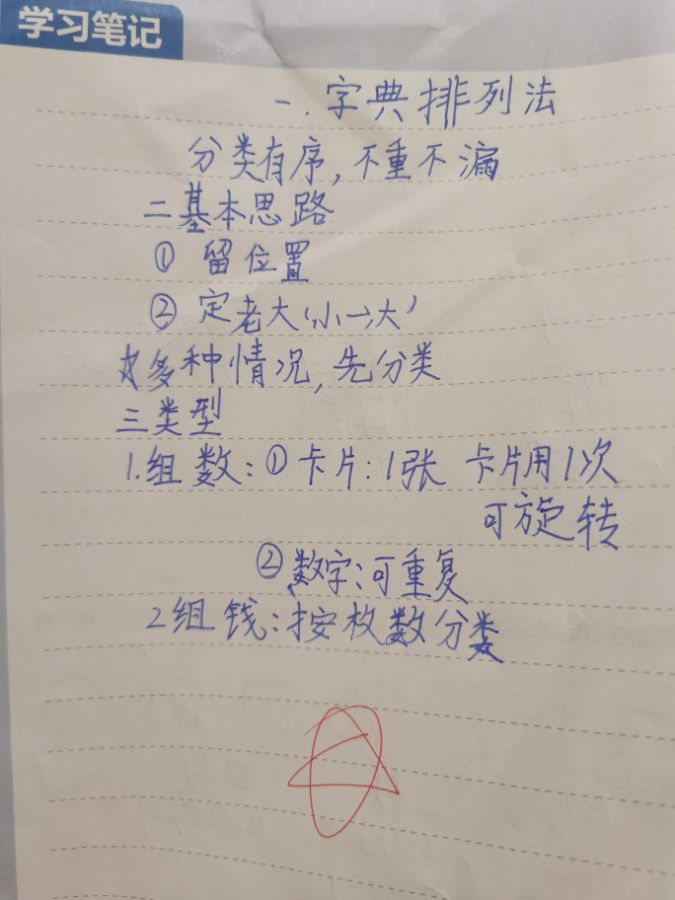 学习笔记
一.字典排列法
分类有序,不重不漏
二基本思路
① 留位置
② 定老大(小→大)
多种情况,先分类
三类型
1.组数:①卡片:1张 卡片用1次
可旋转
②数字:可重复
2组钱:按枚数分类